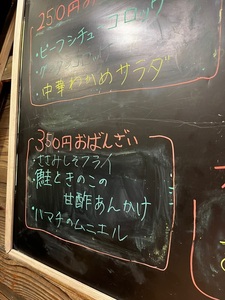 250円お
・ビーフシチュー コロッケ
・中華わかめサラダ
350円おばんざい
・ささみしそフライ
・鮭ときのこの
甘酢あんかけ
・ハマチのムニエル